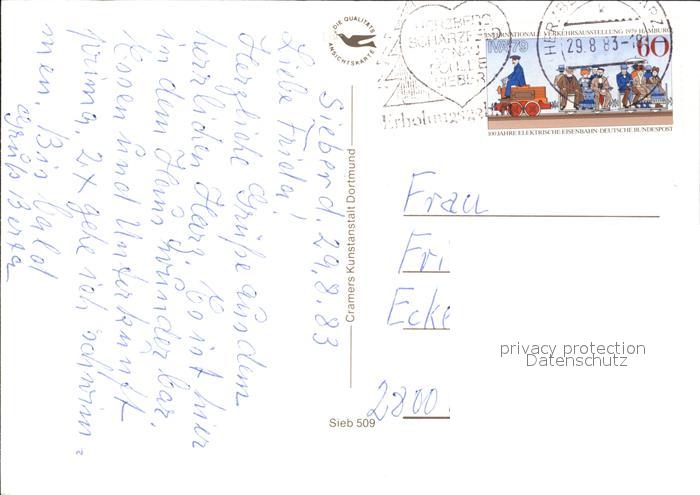 Sieber d. 29.8.83
Liebe Frieda!
Herzliche Grüße aus dem
herrlichen Harz. Es ist hier
in dem Haus wunderbar.
Essen und Unterkunft
prima, 2x gehe ich schwim-
men. Bis bald
Grüß Berta
DIE QUALITÄTS
ANSICHTSKARTE
Cramers Kunstanstalt Dortmund
Sieb 509
HERZBERG
SCHARZFELD
SIEBER
Erholungs
29.8.83-1
INTERNATIONALE VERKEHRSAUSSTELLUNG 1979 HAMBURG
IVA79
60
100 JAHRE ELEKTRISCHE EISENBAHN·DEUTSCHE BUNDESPOST
Frau
Fri
Ecke
2800
privacy protection
Datenschutz